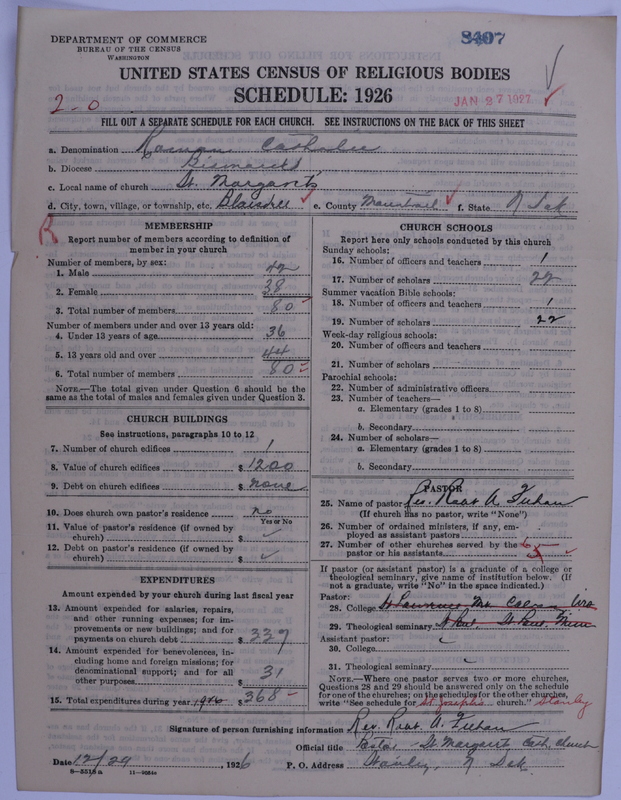 DEPARTMENT OF COMMERCE
BUREAU OF THE CENSUS
WASHINGTON
8407
UNITED STATES CENSUS OF RELIGIOUS BODIES
SCHEDULE: 1926
2-0
JAN 27 1927
FILL OUT A SEPARATE SCHEDULE FOR EACH CHURCH. SEE INSTRUCTIONS ON THE BACK OF THIS SHEET
a. Denomination Roman Catholic
b. Diocese Bismarck
c. Local name of church St. Margarets
d. City, town, village, or township, etc. Blaisdell e. County Mountrail f. State N Dak
R
MEMBERSHIP
Report number of members according to definition of
member in your church
Number of members, by sex:
1. Male 42
2. Female 38
3. Total number of members 80
Number of members under and over 13 years old:
4. Under 13 years of age 36
5. 13 years old and over 44
6. Total number of members 80
NOTE.—The total given under Question 6 should be the
same as the total of males and females given under Question 3.
CHURCH BUILDINGS
See instructions, paragraphs 10 to 12
7. Number of church edifices 1
8. Value of church edifices $ 1200
9. Debt on church edifices $ none
10. Does church own pastor's residence? no
Yes or No
11. Value of pastor's residence (if owned by
church) $
12. Debt on pastor's residence (if owned by
church) $
EXPENDITURES
Amount expended by your church during last fiscal year
13. Amount expended for salaries, repairs,
and other running expenses; for im-
provements or new buildings; and for
payments on church debt $ 337
14. Amount expended for benevolences, in-
cluding home and foreign missions; for
denominational support; and for all
other purposes $ 31
15. Total expenditures during year 1926 $ 368
CHURCH SCHOOLS
Report here only schools conducted by this church
Sunday schools:
16. Number of officers and teachers 1
17. Number of scholars 22
Summer vacation Bible schools:
18. Number of officers and teachers 1
19. Number of scholars 22
Week-day religious schools:
20. Number of officers and teachers
21. Number of scholars
Parochial schools:
22. Number of administrative officers
23. Number of teachers—
a. Elementary (grades 1 to 8)
b. Secondary
24. Number of scholars—
a. Elementary (grades 1 to 8)
b. Secondary
PASTOR
25. Name of pastor Rev. Robt A.
(If church has no pastor, write "None")
26. Number of ordained ministers, if any, em-
ployed as assistant pastors
27. Number of other churches served by the
pastor or his assistants 5
If pastor (or assistant pastor) is a graduate of a college or
theological seminary, give name of institution below. (If
not a graduate, write "No" in the space indicated.)
Pastor:
28. College St Lawrence Mt. Calvary Wis
29. Theological seminary St Paul, St Paul Minn
Assistant pastor:
30. College
31. Theological seminary
NOTE.—Where one pastor serves two or more churches,
Questions 28 and 29 should be answered only on the schedule
for one of the churches; on the schedules for the other churches,
write "See schedule for St Josephs church." Stanley
Signature of person furnishing information Rev. Robt A.
Official title Pastor St Margarets Cath. Church
Date 12/29, 1926 P. O. Address Stanley, N Dak
8-5518a 11-9954a